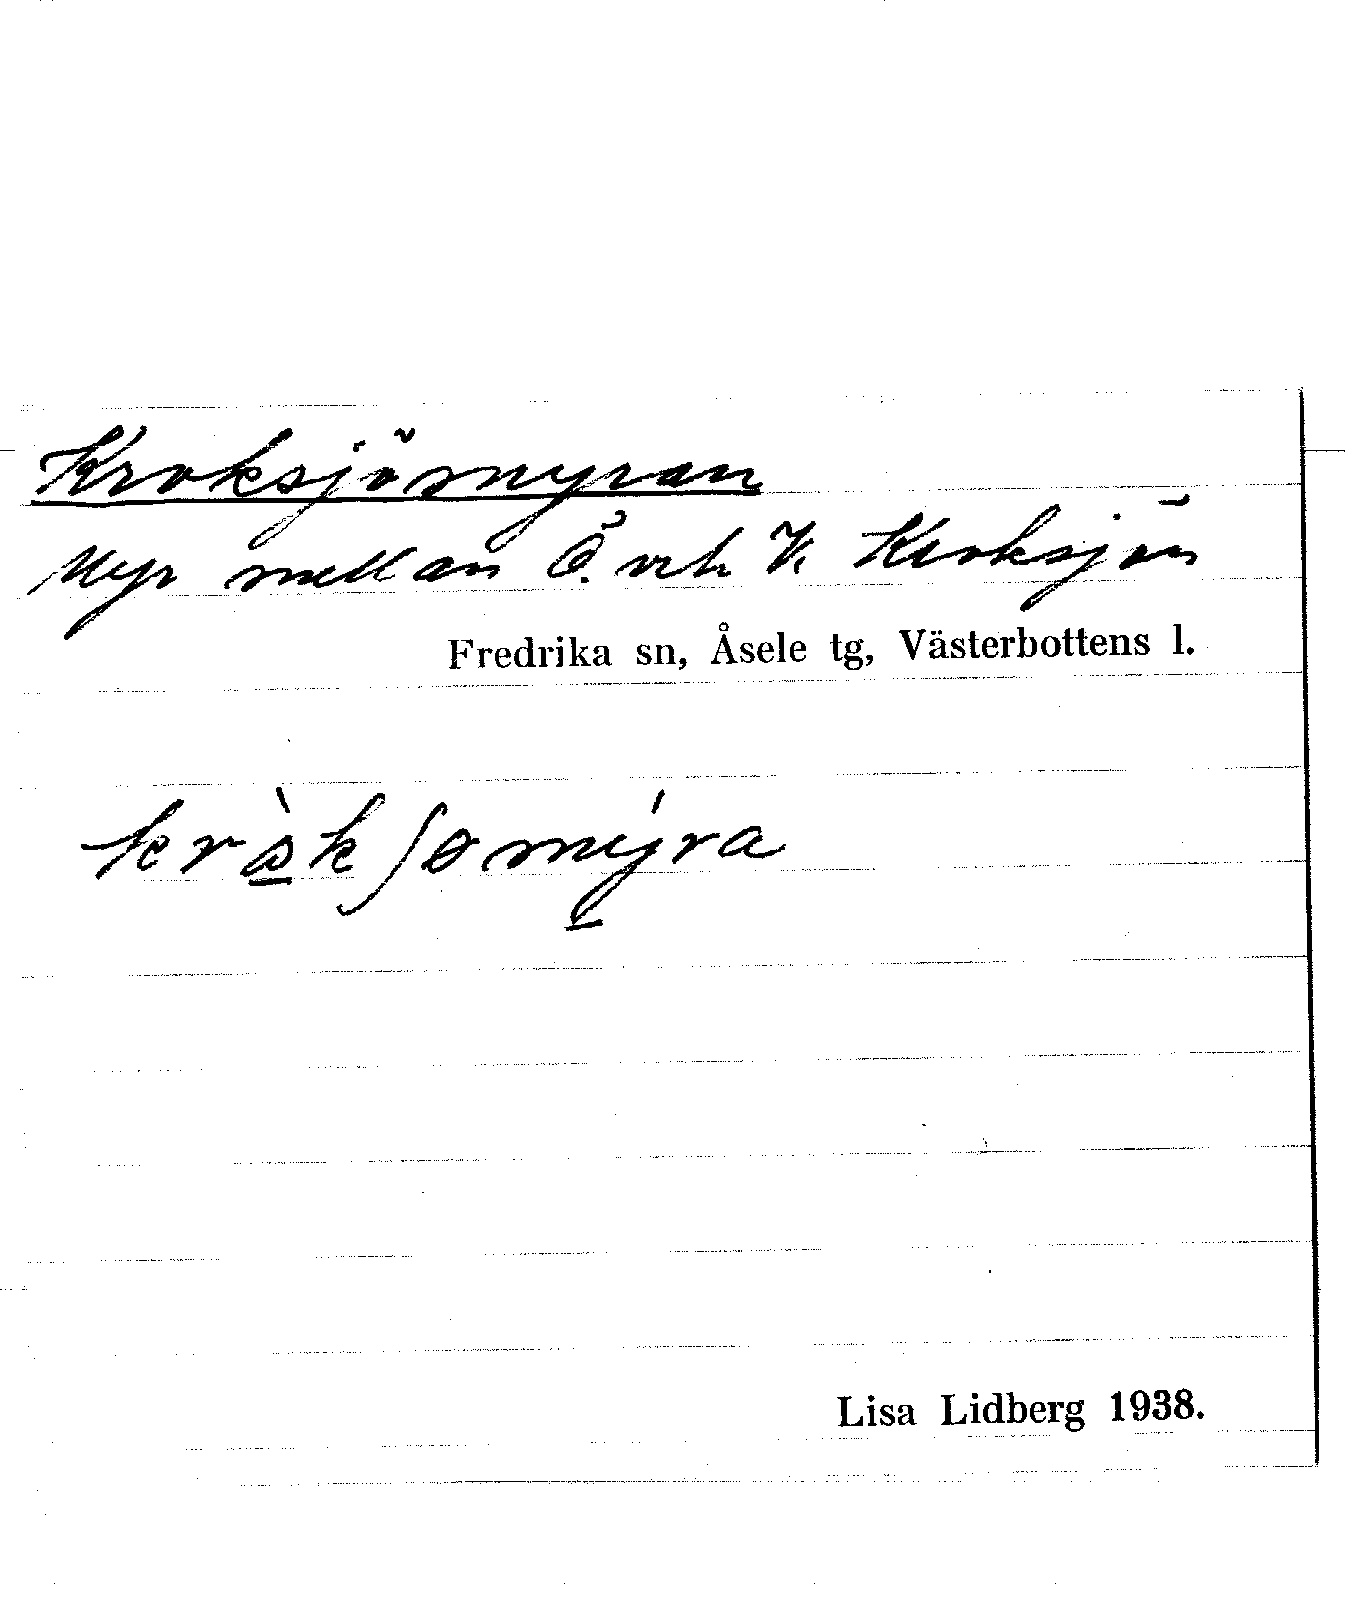 Kroksjömyran
Myr mellan Ö. och V. Kroksjön
Fredrika sn, Åsele tg, Västerbottens l.
Lisa Lidberg 1938.